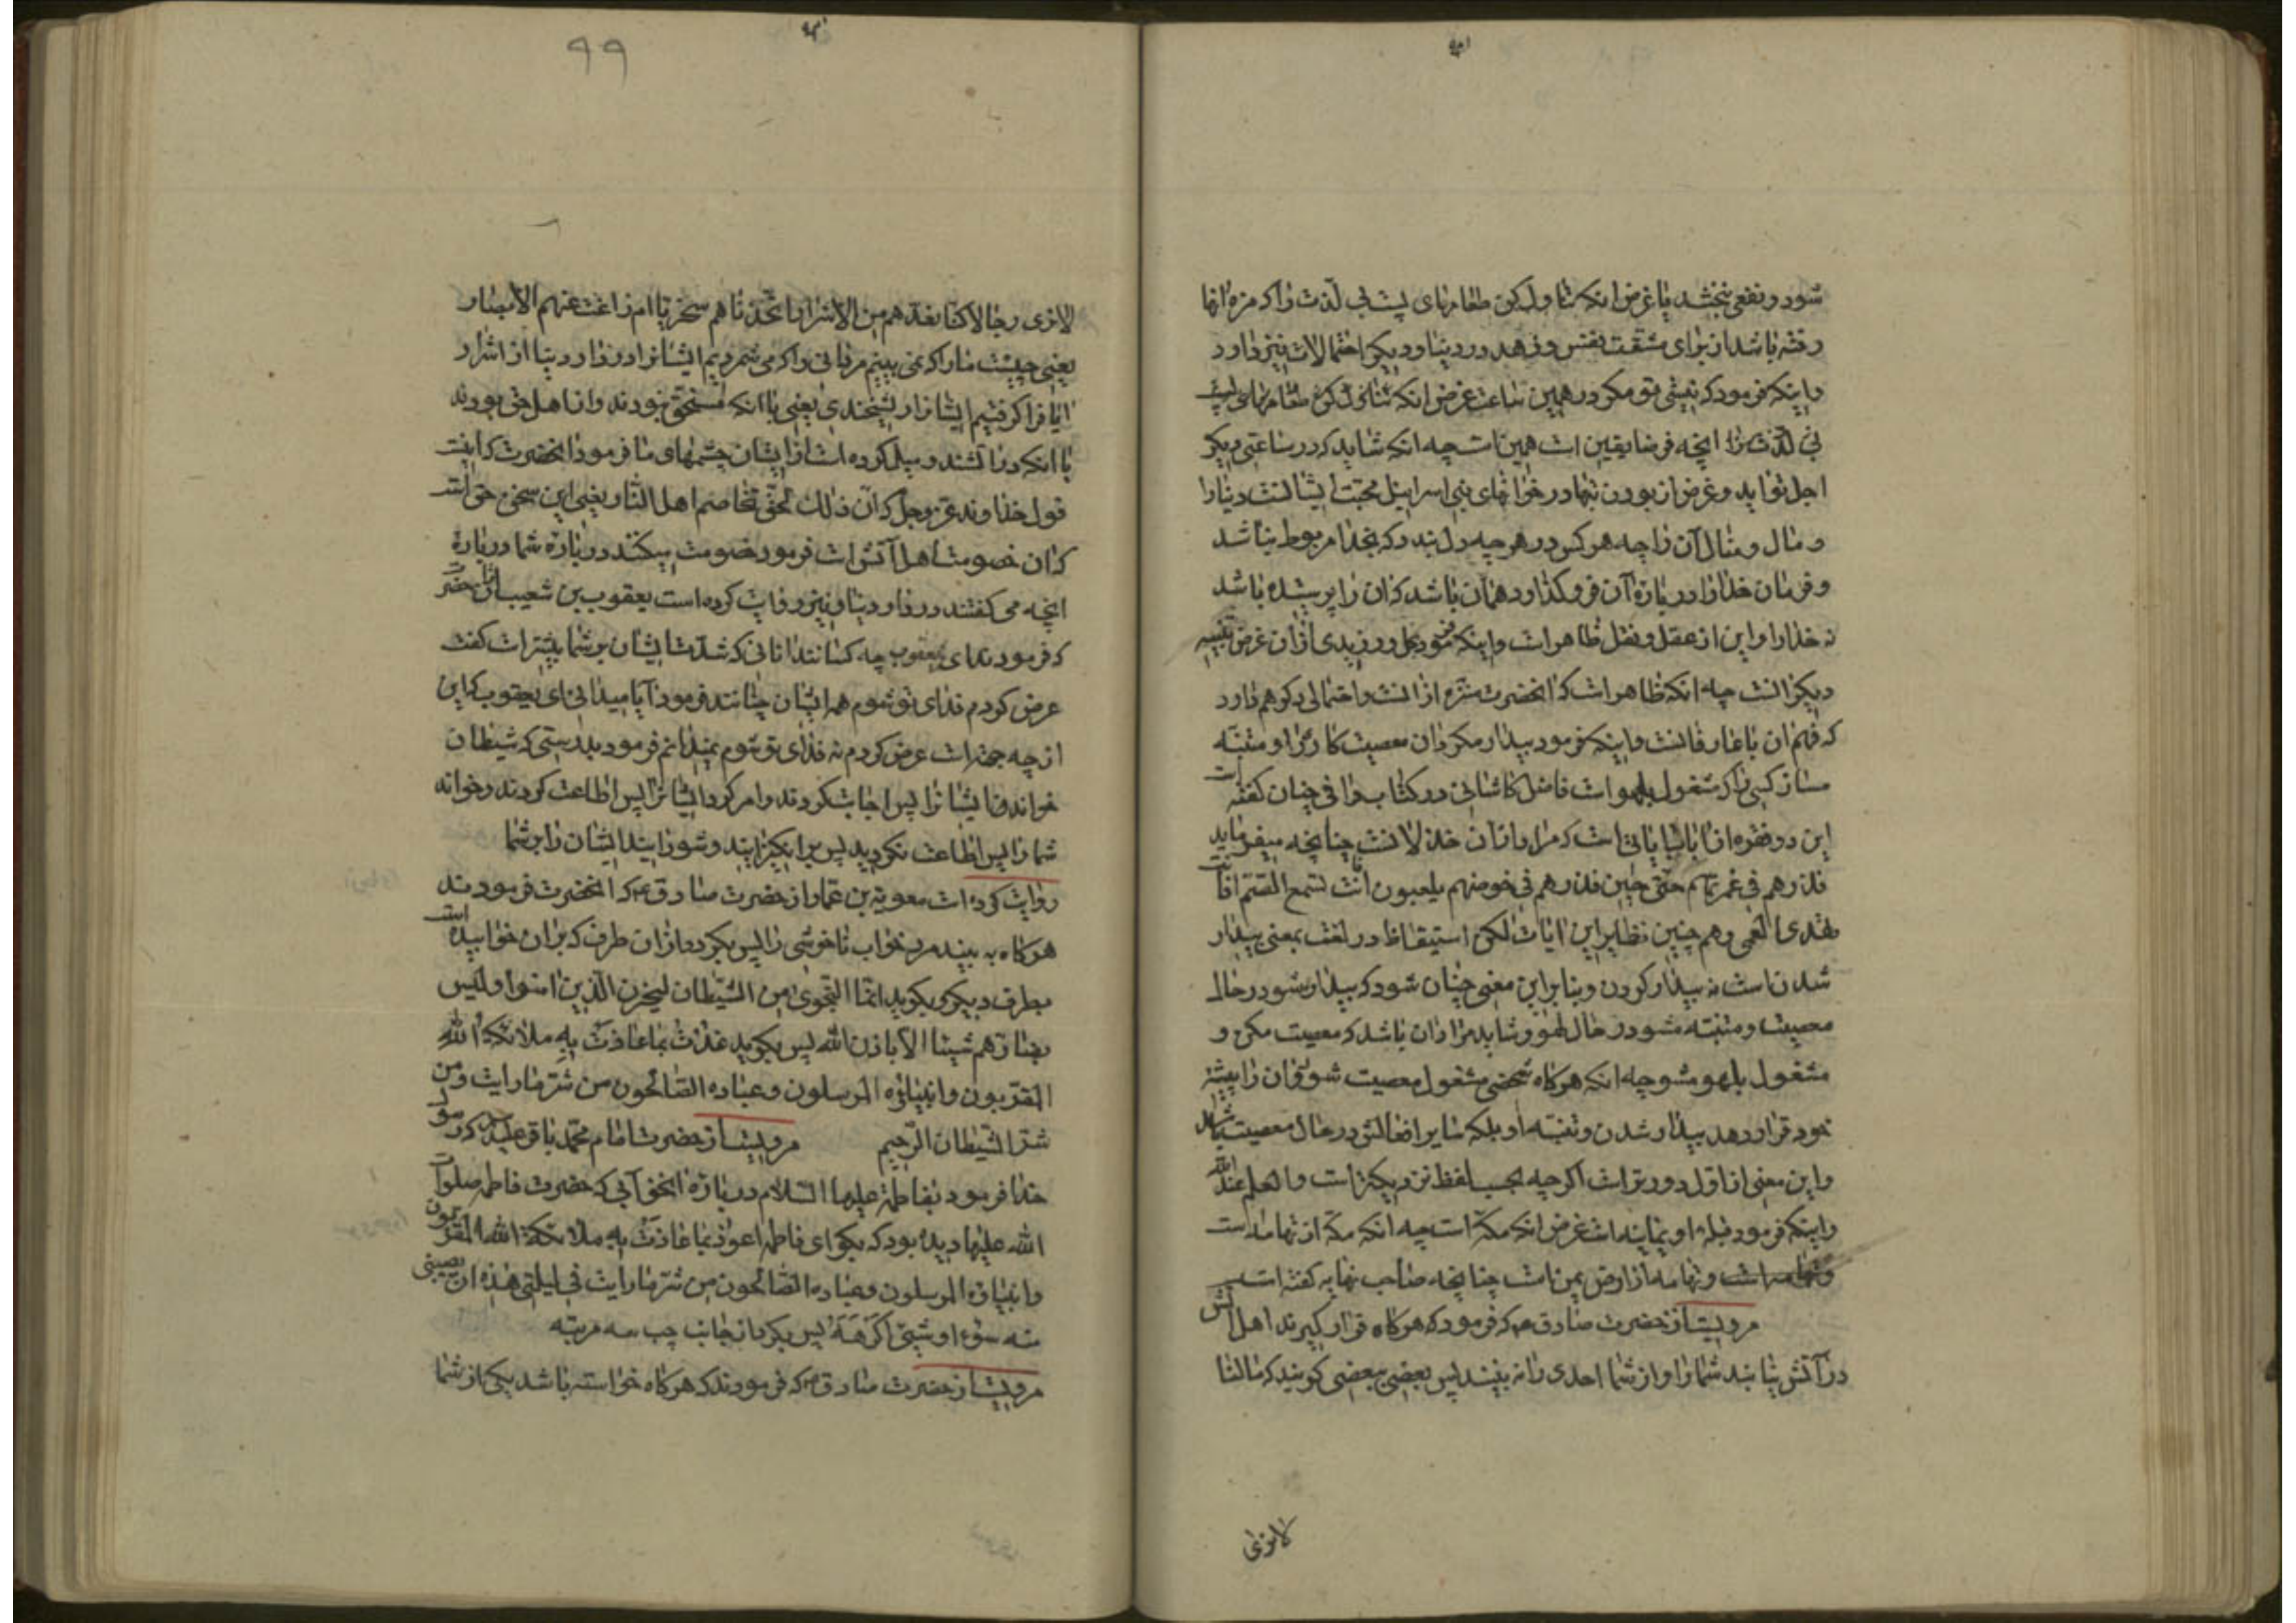 شود و نفعی نبخشد یا غرض انکه تناول کن طعامهای پست بی لذت را که مزه انها
رفته باشد از برای مشقت نفس و زهد در دنیا و دیگر احتمالات نیز دارد
واینکه فرمود که تبیتی مکو در همین ساعت غرض انکه تناول کن طعامهای پست
بی لذت را انچه فرضا یقین است همین است چه انکه شاید که در ساعتی دیگر
اجل تو اید و غرض از بودن تنها در خوانهای بنی اسرائیل محبت ایشانست دنیا را
و مال و منال آن را چه هرکس در هرچه دل بندد که بخدا مربوط نباشد
و فرمان خدا را در باره آن فروگذارد همان باشد که آن را پرستیده باشد
نه خدا را و این از عقل و نقل ظاهر است واینکه فرمود بما ورزیدی از آن غرض تنبیه
دیگرانست چه انکه ظاهر است که انحضرت منزه از آنست و احتمالی دکر هم دارد
که فهم ان با عارفانست واینکه فرمود بیدار مکردان معصیت کار را و متنبه
مساز کسی را که مشغول بلهو است فاضل کاشانی در کتاب وافی چنان گفته است
این دو فقره از باب اتیانی است که مراد از آن خذلانست چنانچه میفرماید
فذرهم فی غمرتهم حتی حین فذرهم فی خوضهم یلعبون أنت تسمع الصم افانت
تهدی العمی و هم چنین نظایر این ایات لکن استیقاظ در لغت بمعنی بیدار
شدن است نه بیدار کردن و بنا بر این معنی چنان شود که بیدار مشو در حال
معصیت و متنبه مشو در حال لهو و شاید مراد آن باشد که معصیت مکن و
مشغول بلهو مشو چه انکه هرکاه شخصی مشغول معصیت شود آن را پیشه
خود قرار دهد بیدار شدن و تنبه او بلکه سایر افعالش در حال معصیت باشد
و این معنی از اول دورتر است اکرچه بحسب لفظ نزدیکتر است والعلم عند الله
واینکه فرمود قبله او یمانیه است غرض انکه مکه است چه انکه مکه از تهامه است
و تهامه از ارض یمن است چنانچه صاحب نهایه گفته است
مرویست از حضرت صادق ع که فرمود که هرکاه قرار کیرند اهل آتش
در آتش نیابند شما را و از شما احدی را نه بینند پس بعضی ببعضی کویند که مالنا
لانری
۹۹
لانری رجالا کنا نعدهم من الاشرار اتخذناهم سخریا ام زاغت عنهم الابصار
یعنی چیست ما را که نمی بینیم مردانی را که می شمردیم ایشانرا در دار دنیا از اشرار
ایا فرا کرفتیم ایشانرا بریشخندی یعنی با انکه مستحق نبودند و از اهل حق بودند
یا انکه در آتشند و میل کرده است از ایشان چشمهای ما فرمود انحضرت که اینست
قول خداوند عز وجل که ان ذلک لحق تخاصم اهل النار یعنی این سخن حق است
که آن خصومت اهل آتش است فرمود خصومت میکنند در باره شما در باره
انچه می گفتند در دار دنیا و نیز روایت کرده است یعقوب بن شعیب از انحضرت
که فرمودند ای یعقوب چه کسانند انانی که شدت ایشان بر شما بیشتر است گفت
عرض کردم فدای تو شوم همه ایشان چنانند فرمود آیا میدانی ای یعقوب که این
از چه جهت است عرض کردم نه فدای تو شوم نمیدانم فرمود بدرستی که شیطان
خواند ایشانرا پس اجابت کردند و امر کرد ایشانرا پس اطاعت کردند و خواند
شما را پس اطاعت نکردید پس برانکیزانید و شورانید ایشان را بر شما
روایت کرده است معویة بن عمار از حضرت صادق ع که انحضرت فرمودند
هرکاه به بیند مرد خواب ناخوشی را پس بکردد از آن طرف که بران خوابیده است
بطرف دیکر و بکوید انما النجوی من الشیطان لیحزن الذین امنوا ولیس
بضارهم شیئا الا باذن الله پس بکوید عذت بما عاذت به ملائکة الله
المقربون وانبیاؤه المرسلون وعباده الصالحون من شر ما رایت ومن
شر الشیطان الرجیم مرویست از حضرت امام محمد باقر علیه که رسول
خدا فرمود بفاطمه علیها السلام در باره انخوابی که حضرت فاطمه صلوات
الله علیها دیده بود که بکو ای فاطمه اعوذ بما عاذت به ملائکة الله المقربون
وانبیاؤه المرسلون وعباده الصالحون من شر ما رایت فی لیلتی هذه ان یصیبنی
منه سوء او شیئ اکرهه پس بکردان جانب چپ سه مرتبه
مرویست از حضرت صادق ع که فرمودند که هرکاه خواسته باشد یکی از شما